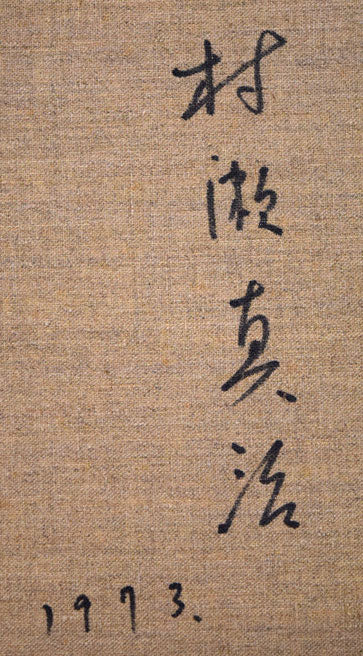 村瀬真治
1973.